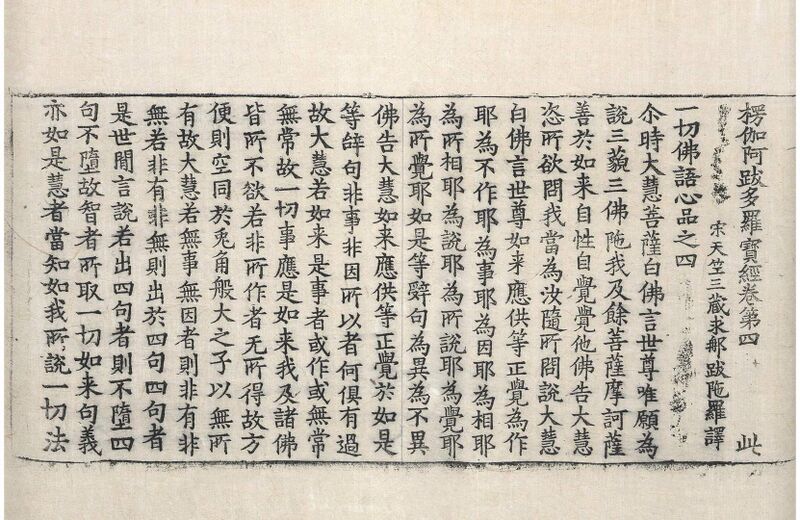 楞伽阿跋多羅寶經卷第四 此
宋天竺三藏求郍跋陁羅譯
一切佛語心品之四
尒時大慧菩薩白佛言世尊唯願為
說三藐三佛陁我及餘菩薩摩訶薩
善於如来自性自覺覺他佛告大慧
恣所欲問我當為汝隨所問說大慧
白佛言世尊如来應供等正覺為作
耶為不作耶為事耶為因耶為相耶
為所相耶為說耶為所說耶為覺耶
為所覺耶如是等辭句為異為不異
佛告大慧如来應供等正覺於如是
等辭句非事非因所以者何俱有過
故大慧若如来是事者或作或無常
無常故一切事應是如来我及諸佛
皆所不欲若非所作者无所得故方
便則空同於兎角般大之子以無所
有故大慧若無事無因者則非有非
無若非有非無則出於四句四句者
是世間言說若出四句者則不墮四
句不墮故智者所取一切如来句義
亦如是慧者當知如我所說一切法